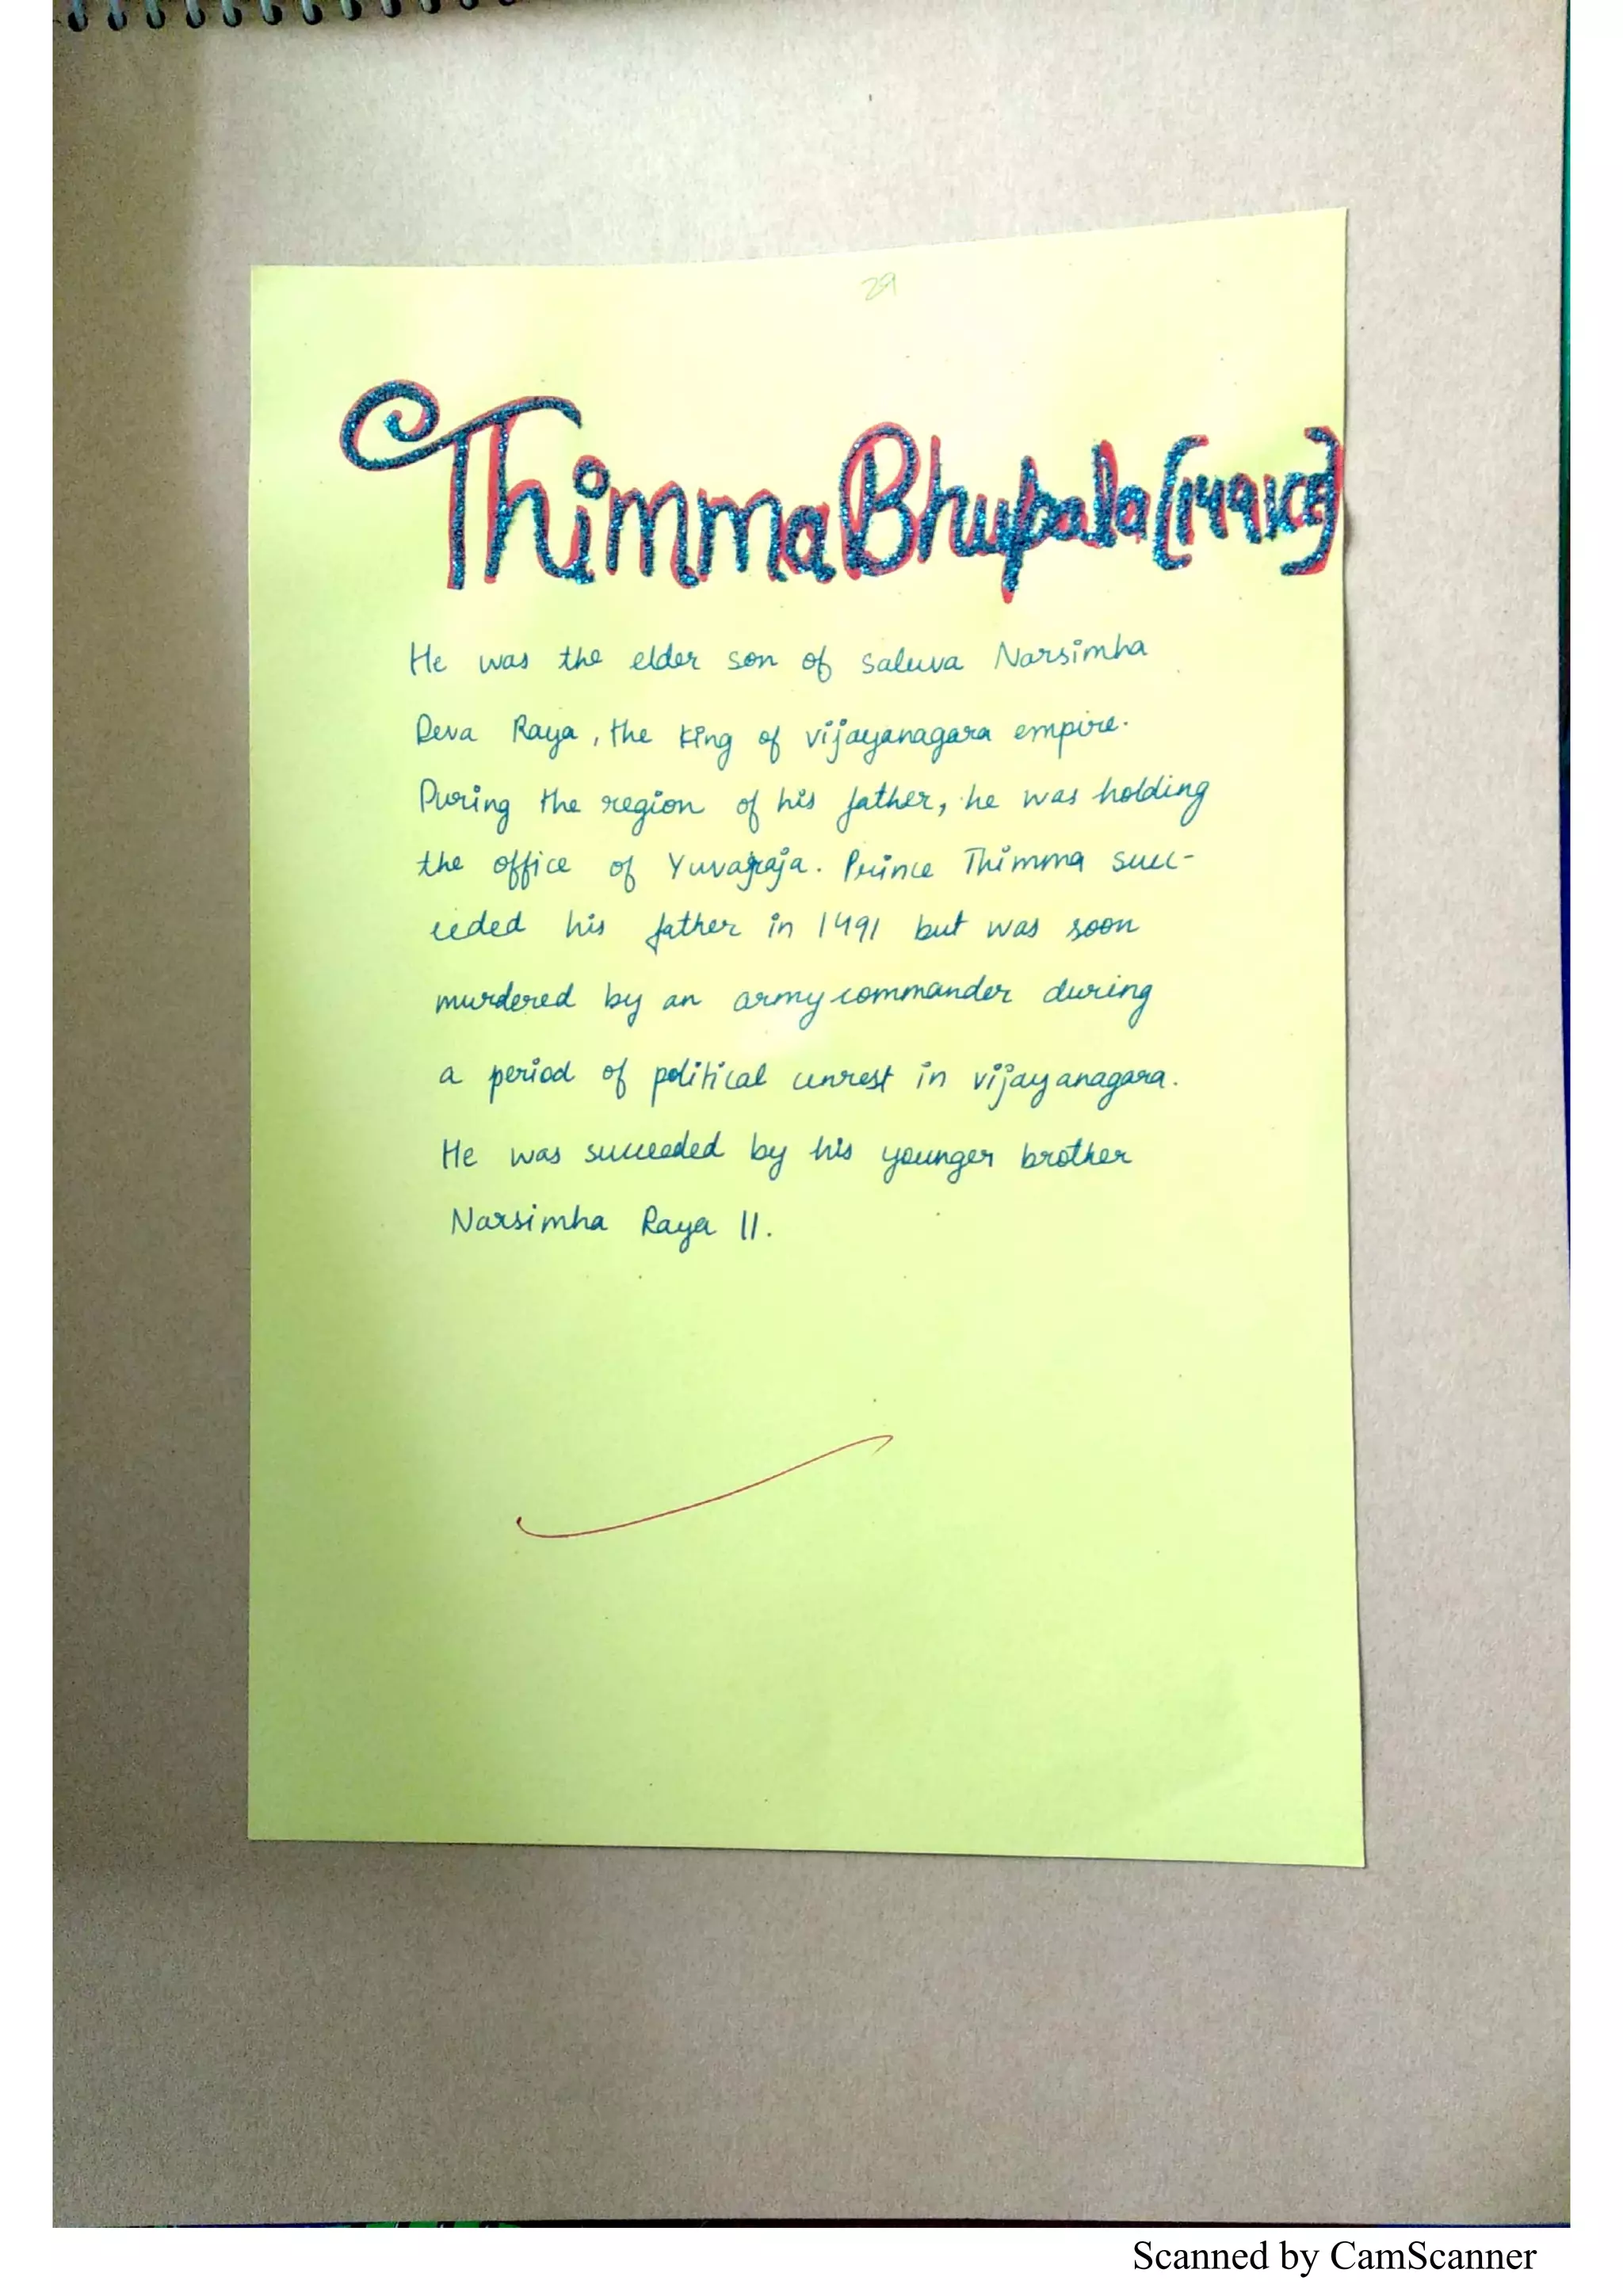 29
Thimma Bhupala (1491CE)
He was the elder son of saluva Narsimha
Deva Raya, the king of vijayanagara empire.
During the region of his father, he was holding
the office of Yuvaraja. Prince Thimma succ-
eeded his father in 1491 but was soon
murdered by an army commander during
a period of political unrest in vijayanagara.
He was succeeded by his younger brother
Narsimha Raya II.
Scanned by CamScanner